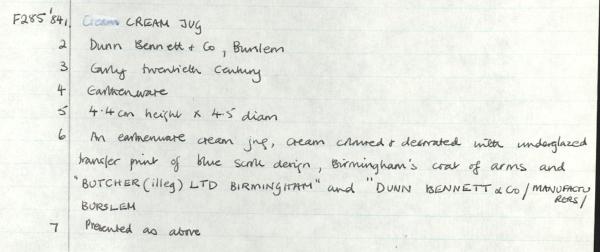 F285'84. 1 Cream CREAM JUG
2 Dunn Bennett & Co, Burslem
3 Early twentieth Century
4 Earthenware
5 4.4cm height x 4.5 diam
6 An earthenware cream jug, cream coloured & decorated with underglazed
transfer print of blue scroll design, Birmingham's coat of arms and
"BUTCHER (illeg) LTD BIRMINGHAM" and "DUNN BENNETT & CO / MANUFACTU
RERS/
BURSLEM
7 Presented as above